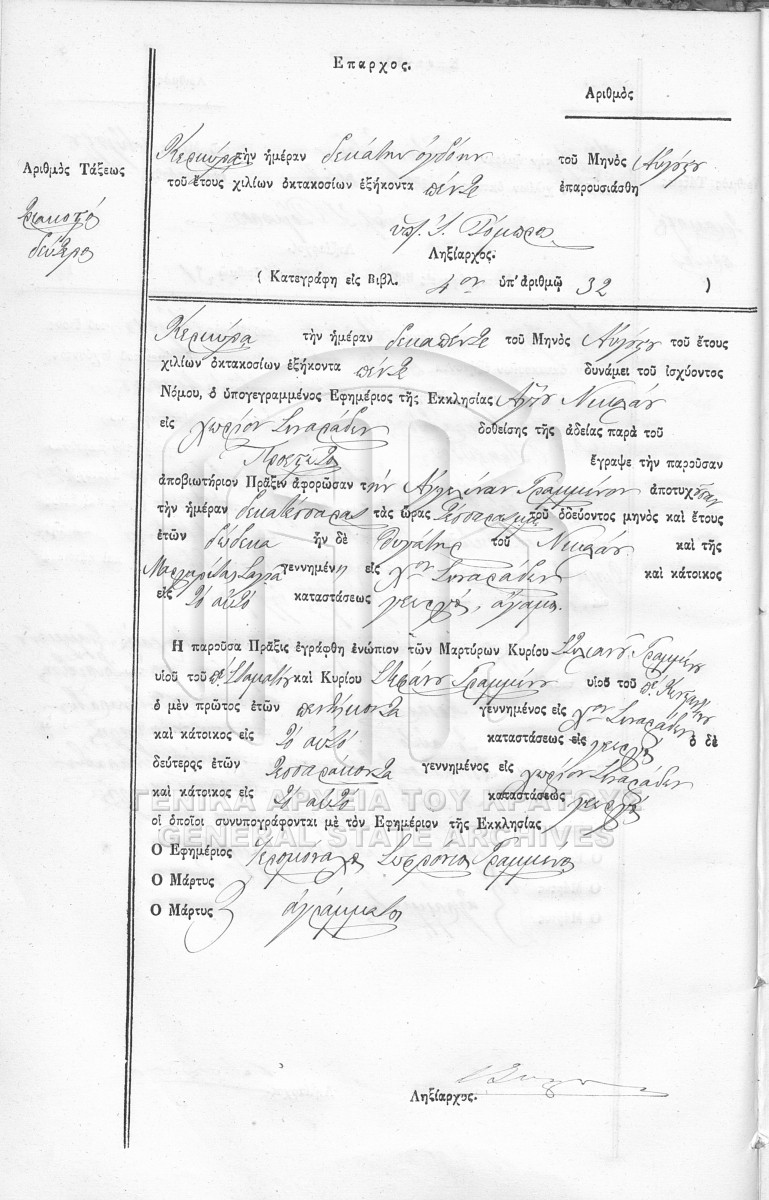 Επαρχος.
Αριθμὸς
Ἀριθμὸς Τάξεως
τριακοστὸ
δεύτερο
Κερκύρα τὴν ἡμέραν δεκάτην ὀγδόην τοῦ Μηνὸς Αὐγούστου
τοῦ ἔτους χιλίων ὀκτακοσίων ἐξήκοντα πέντε ἐπαρουσιάσθη
Ληξίαρχος.
( Κατεγράφη εἰς Βιβλ. 4ον ὑπ' ἀριθμῷ 32 )
Κερκύρα τὴν ἡμέραν δεκαπέντε τοῦ Μηνὸς Αὐγούστου τοῦ ἔτους
χιλίων ὀκτακοσίων ἐξήκοντα πέντε δυνάμει τοῦ ἰσχύοντος
Νόμου, ὁ ὑπογεγραμμένος Ἐφημέριος τῆς Ἐκκλησίας Ἁγίου Νικολάου
εἰς χωρίον Σιναράδων δοθείσης τῆς ἀδείας παρὰ τοῦ
Προεστῶτος ἔγραψε τὴν παροῦσαν
ἀποβιωτήριον Πρᾶξιν ἀφορῶσαν τὴν Ἀγγελίναν Γραμμένου ἀποτυχοῦσαν
τὴν ἡμέραν δεκατέσσαρας τὰς ὥρας τέσσαρας τοῦ ὁδεύοντος μηνὸς καὶ ἔτους
ἐτῶν δώδεκα ἦν δὲ θυγάτηρ τοῦ Νικολάου καὶ τῆς
Μαργαρίτας γεννημένη εἰς χον Σιναράδων καὶ κάτοικος
εἰς τὸ αὐτὸ καταστάσεως γεωργὸς, ἄγαμος.
Ἡ παροῦσα Πρᾶξις ἐγράφθη ἐνώπιον τῶν Μαρτύρων Κυρίου Στυλιανοῦ Γραμμένου
υἱοῦ τοῦ π. Σταματίου καὶ Κυρίου Στεφάνου Γραμμένου υἱοῦ τοῦ π.
ὁ μὲν πρῶτος ἐτῶν πενῆκοντα γεννημένος εἰς χον Σιναράδων
καὶ κάτοικος εἰς τὸ αὐτὸ καταστάσεως εἰς γεωργὸς ὁ δὲ
δεύτερος ἐτῶν τεσσαράκοντα γεννημένος εἰς χωρίον Σιναράδων
καὶ κάτοικος εἰς τὸ αὐτὸ καταστάσεως γεωργὸς
οἱ ὁποῖοι συνυπογράφονται μὲ τὸν Ἐφημέριον τῆς Ἐκκλησίας
Ὁ Ἐφημέριος Ἱερομόναχος Σωφρόνιος Γραμμένος
Ὁ Μάρτυς
Ὁ Μάρτυς ἀγράμματοι
Ληξίαρχος.
ΓΕΝΙΚΑ ΑΡΧΕΙΑ ΤΟΥ ΚΡΑΤΟΥΣ
GENERAL STATE ARCHIVES